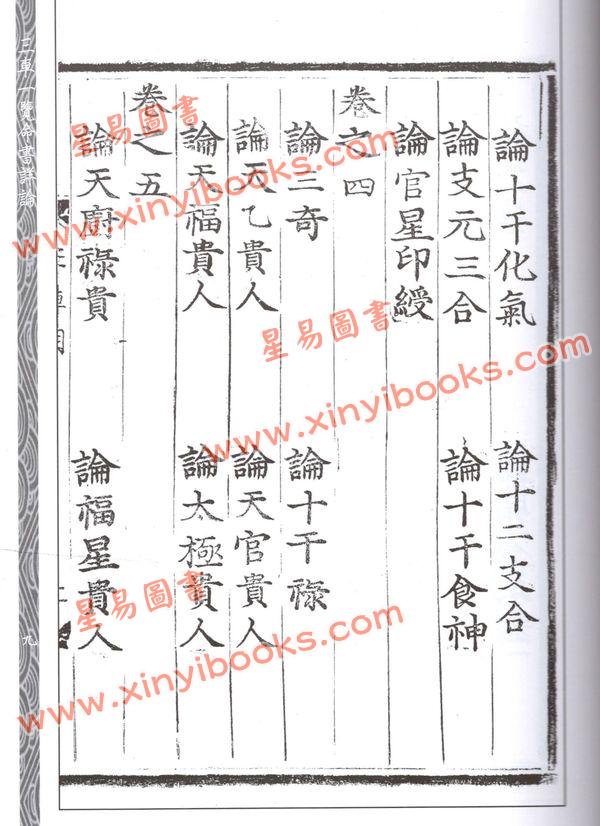 論十干化氣　論十二支合
論支元三合　論十干食神
論官星印綬
卷之四
論三奇　論十干祿
論天乙貴人　論天官貴人
論天福貴人　論太極貴人
卷之五
論天廚祿貴　論福星貴人
三車一覽命書詳論
九
星易圖書
www.xinyibooks.com
星易圖書
www.xinyibooks.com
星易圖書
www.xinyibooks.com